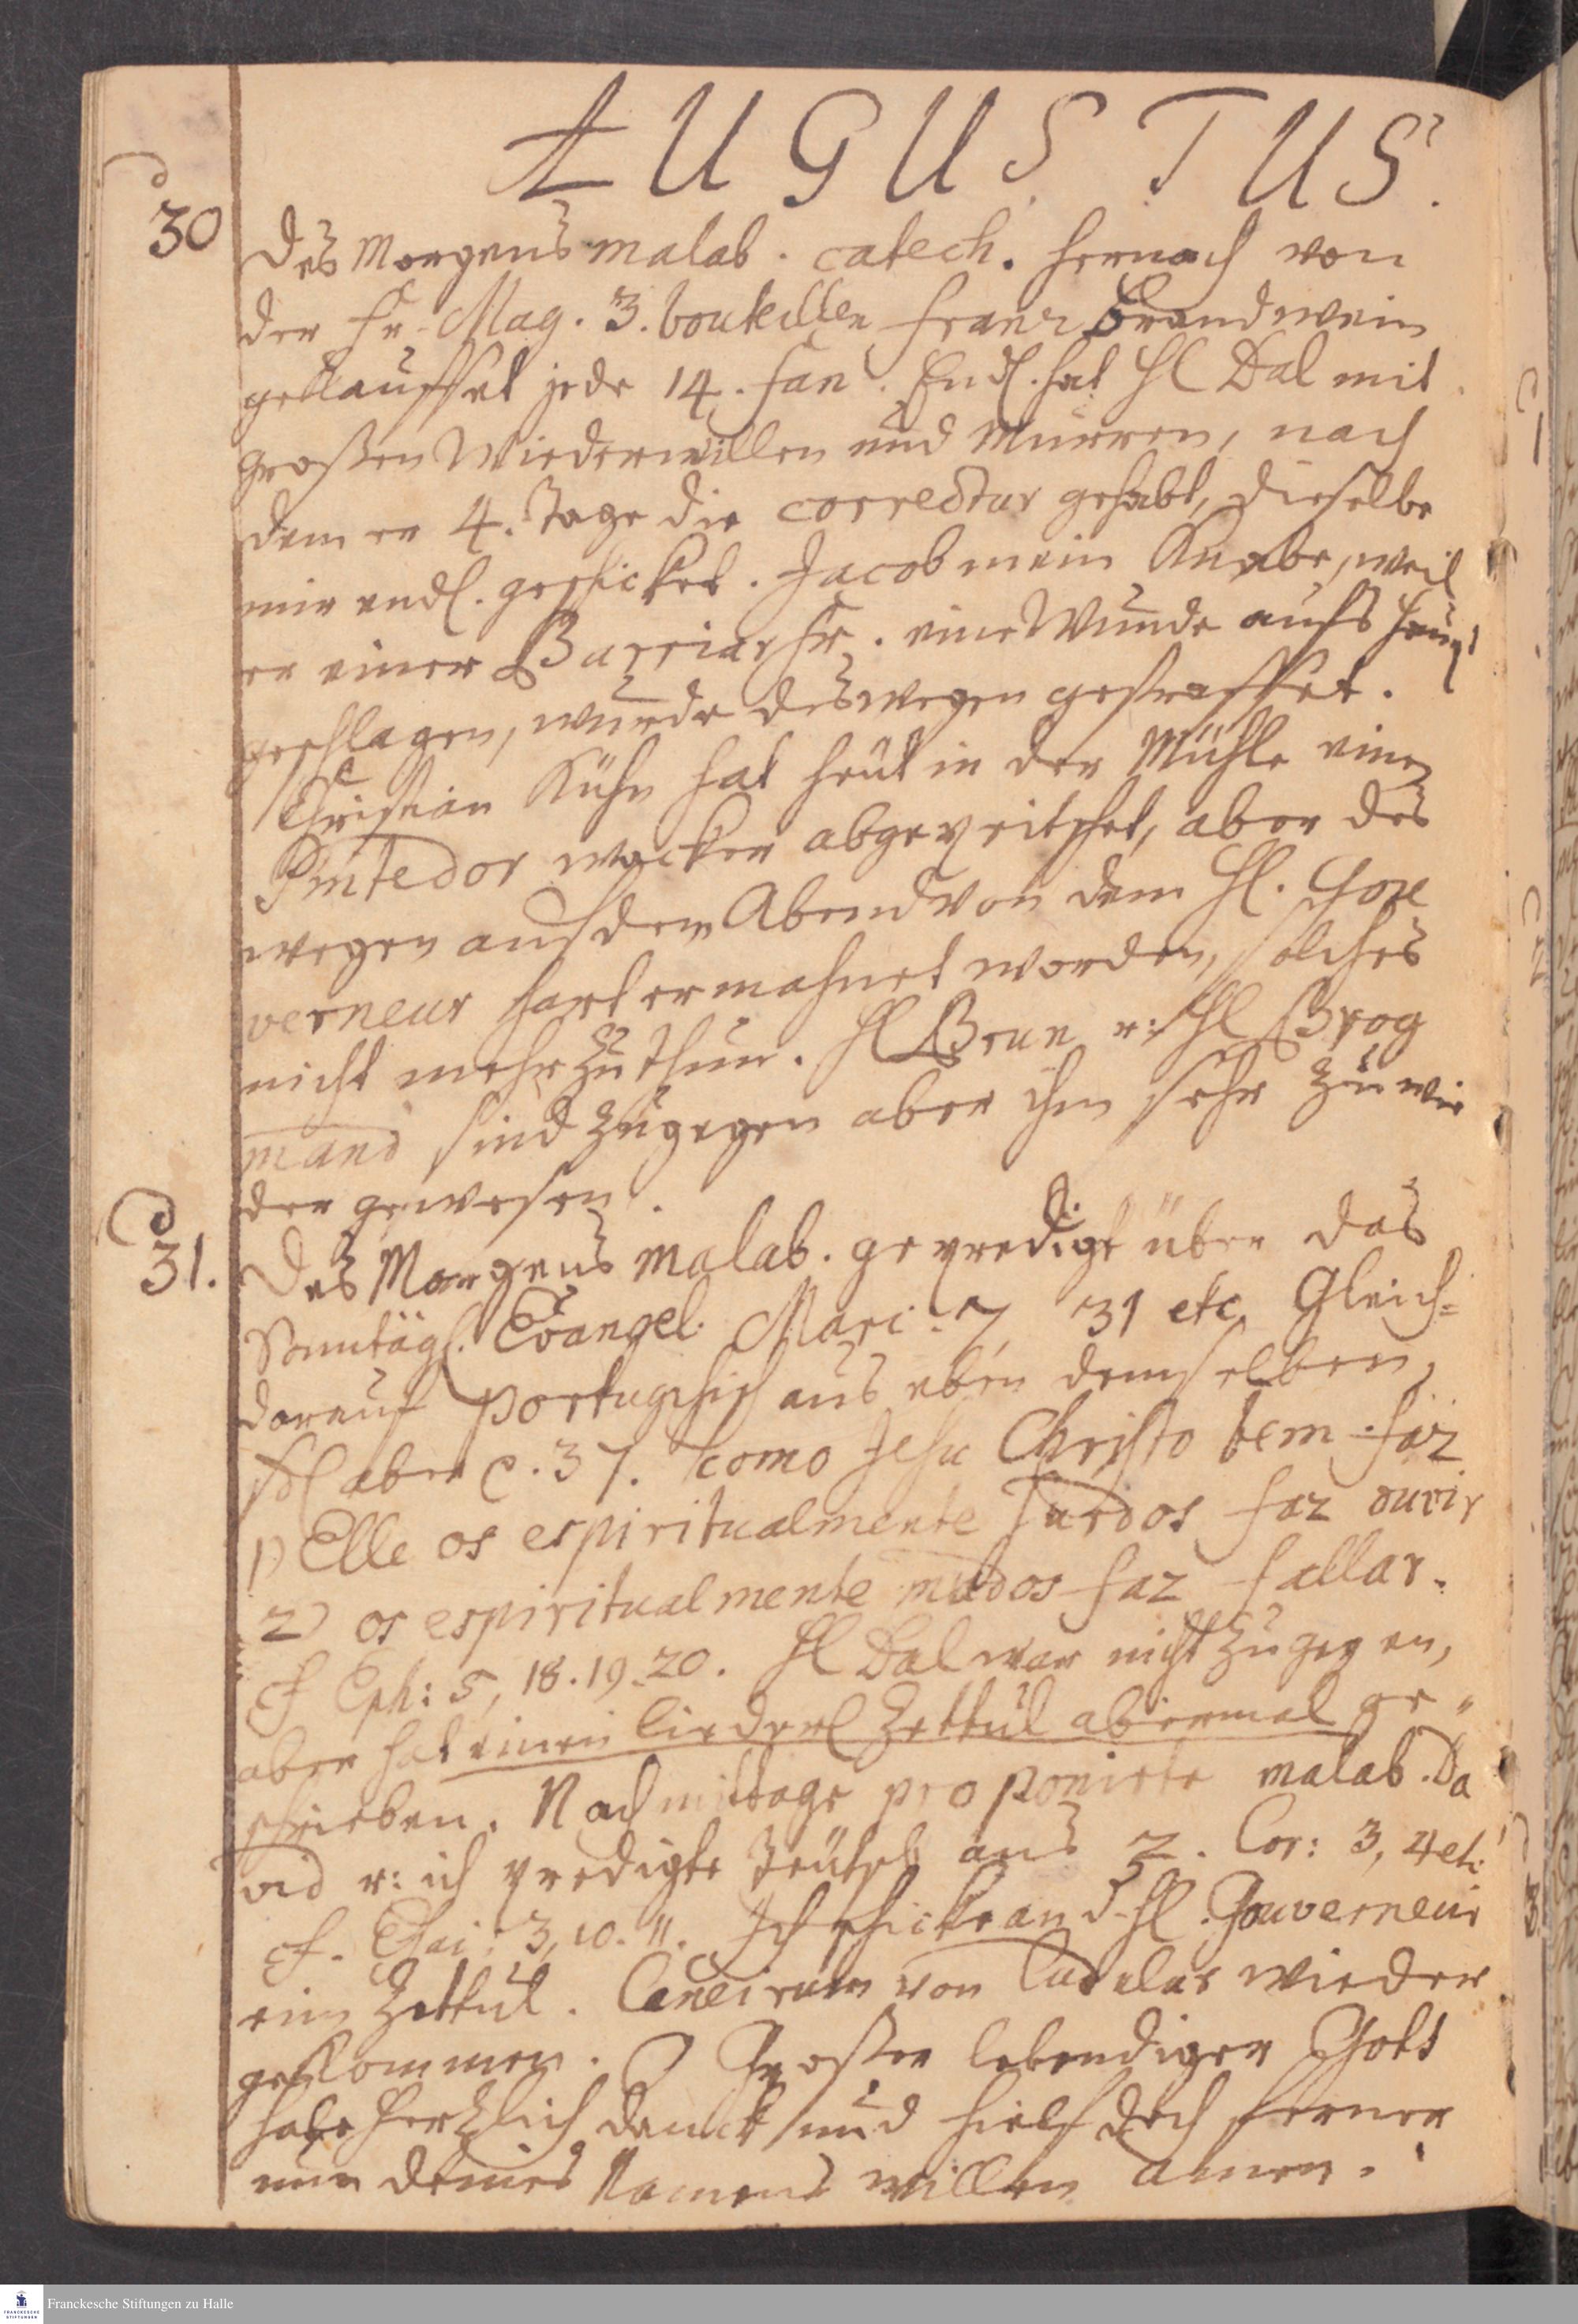 AUGUSTUS.
30
Des Morgens malab. catech. hernach von
der Fr. Mag. 3. bouteillen Franz Brandwein
gekauffet jede 14. fan. Endl. hat Hl Dal mit
großen Wiederwillen und Murren, nach
dem er 4. Tage die correctur gehabt, dieselbe
mir endl. geschicket. Jacob mein Knabe, weil
er einer Barriar Fr. eine Wunde aufs Haupt
geschlagen, wurde deswegen gestraffet.
Christian Kühn hat heut in der Mühle einen
Pintedor wacker abgepeitschet, aber des
wegen auf dem Abend von dem Hl. Gou
verneur hart ermahnet worden, solches
nicht mehr zu thun. Hl Brun u: Hl Brog
mand sind zugegen aber ihm sehr zu wie
der gewesen.
31.
Des Morgens malab. gepredigt über das
Sonntägl. Evangel. Marc. 7, 31 etc. Gleich=
darauf portugisisch aus eben demselben,
 aber c. 37. como Jesu Christo bem faz
1) Elle os espiritualmente surdos faz ouvir
2) os espiritualmente mudos faz fallar.
cf Eph: 5, 18. 19. 20. Hl Dal war nicht zugegen,
aber hat einen liederl Zettul abermal ge=
schrieben. Nachmittags proponirte malab. Da
vid u: ich predigte Teutsch aus 2. Cor: 3, 4 etc
cf. Esai: 3, 10. 11. Ich schickte an d. Hl. Gouverneur
ein Zettul. von Cudelur wieder
gekommen. O Großer lebendiger Gott
habe hertzlich Danck und hielf doch ferner
um deines Namens willen amen.
Franckesche Stiftungen zu Halle